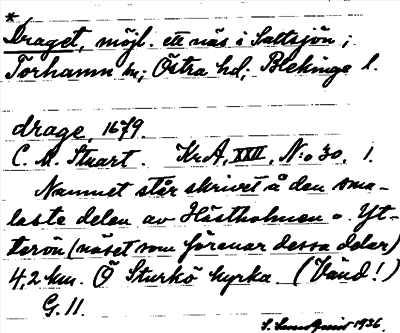 *
Draget, möjl. ett näs i Saltsjön;
Torhamn sn; Östra hd; Blekinge l.
drage, 1679.
C. M. Stuart. KrA, XXII, N:o 30, 1.
Namnet står skrivet å den sma-
laste delen av Hästholmen o. Yt-
terön (näset som förenar dessa delar)
4,2 km. Ö Sturkö kyrka. (Vänd!)
G. 11.
1936.